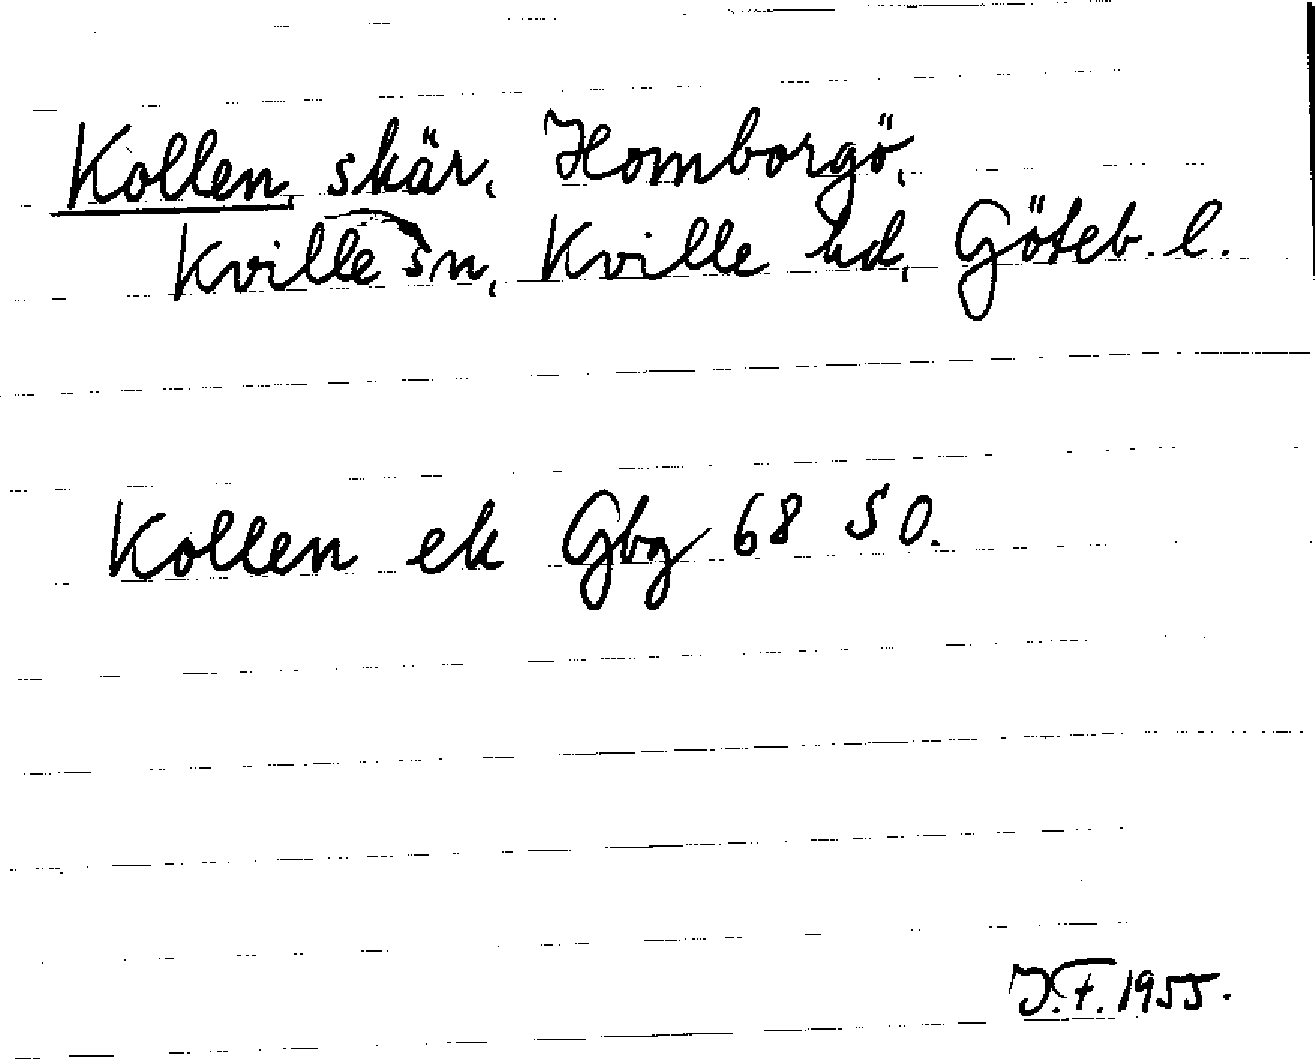 Kollen, skär, Homborgö,
Kville sn, Kville hd, Göteb. l.
Kollen ek Gbg 68 SO.
J.F. 1955.